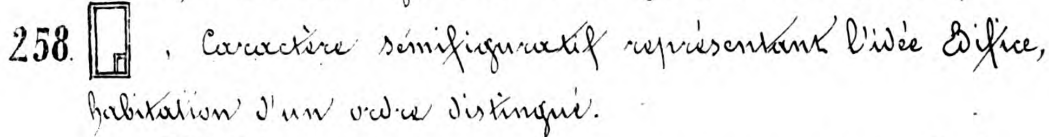 258. 𓉗 , Caractère sémifiguratif représentant l'idée Edifice,
habitation d'un ordre distingué.